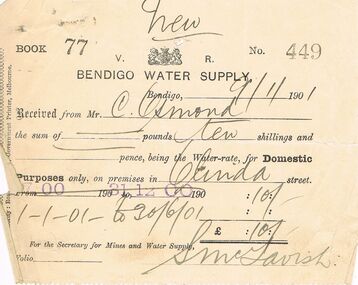 New
BOOK 77 V. R. No. 449
BENDIGO WATER SUPPLY,
Bendigo, 9/11 1901
Received from Mr. C. Osmond
the sum of pounds ten shillings and
pence, being the Water-rate, for Domestic
Purposes only, on premises in street.
From 190 to 31 12 00 190 : 10 :
1-1-01 to 30/6/01 : 10/ :
£ : 10/
For the Secretary for Mines and Water Supply,
Folio
Government Printer, Melbourne.